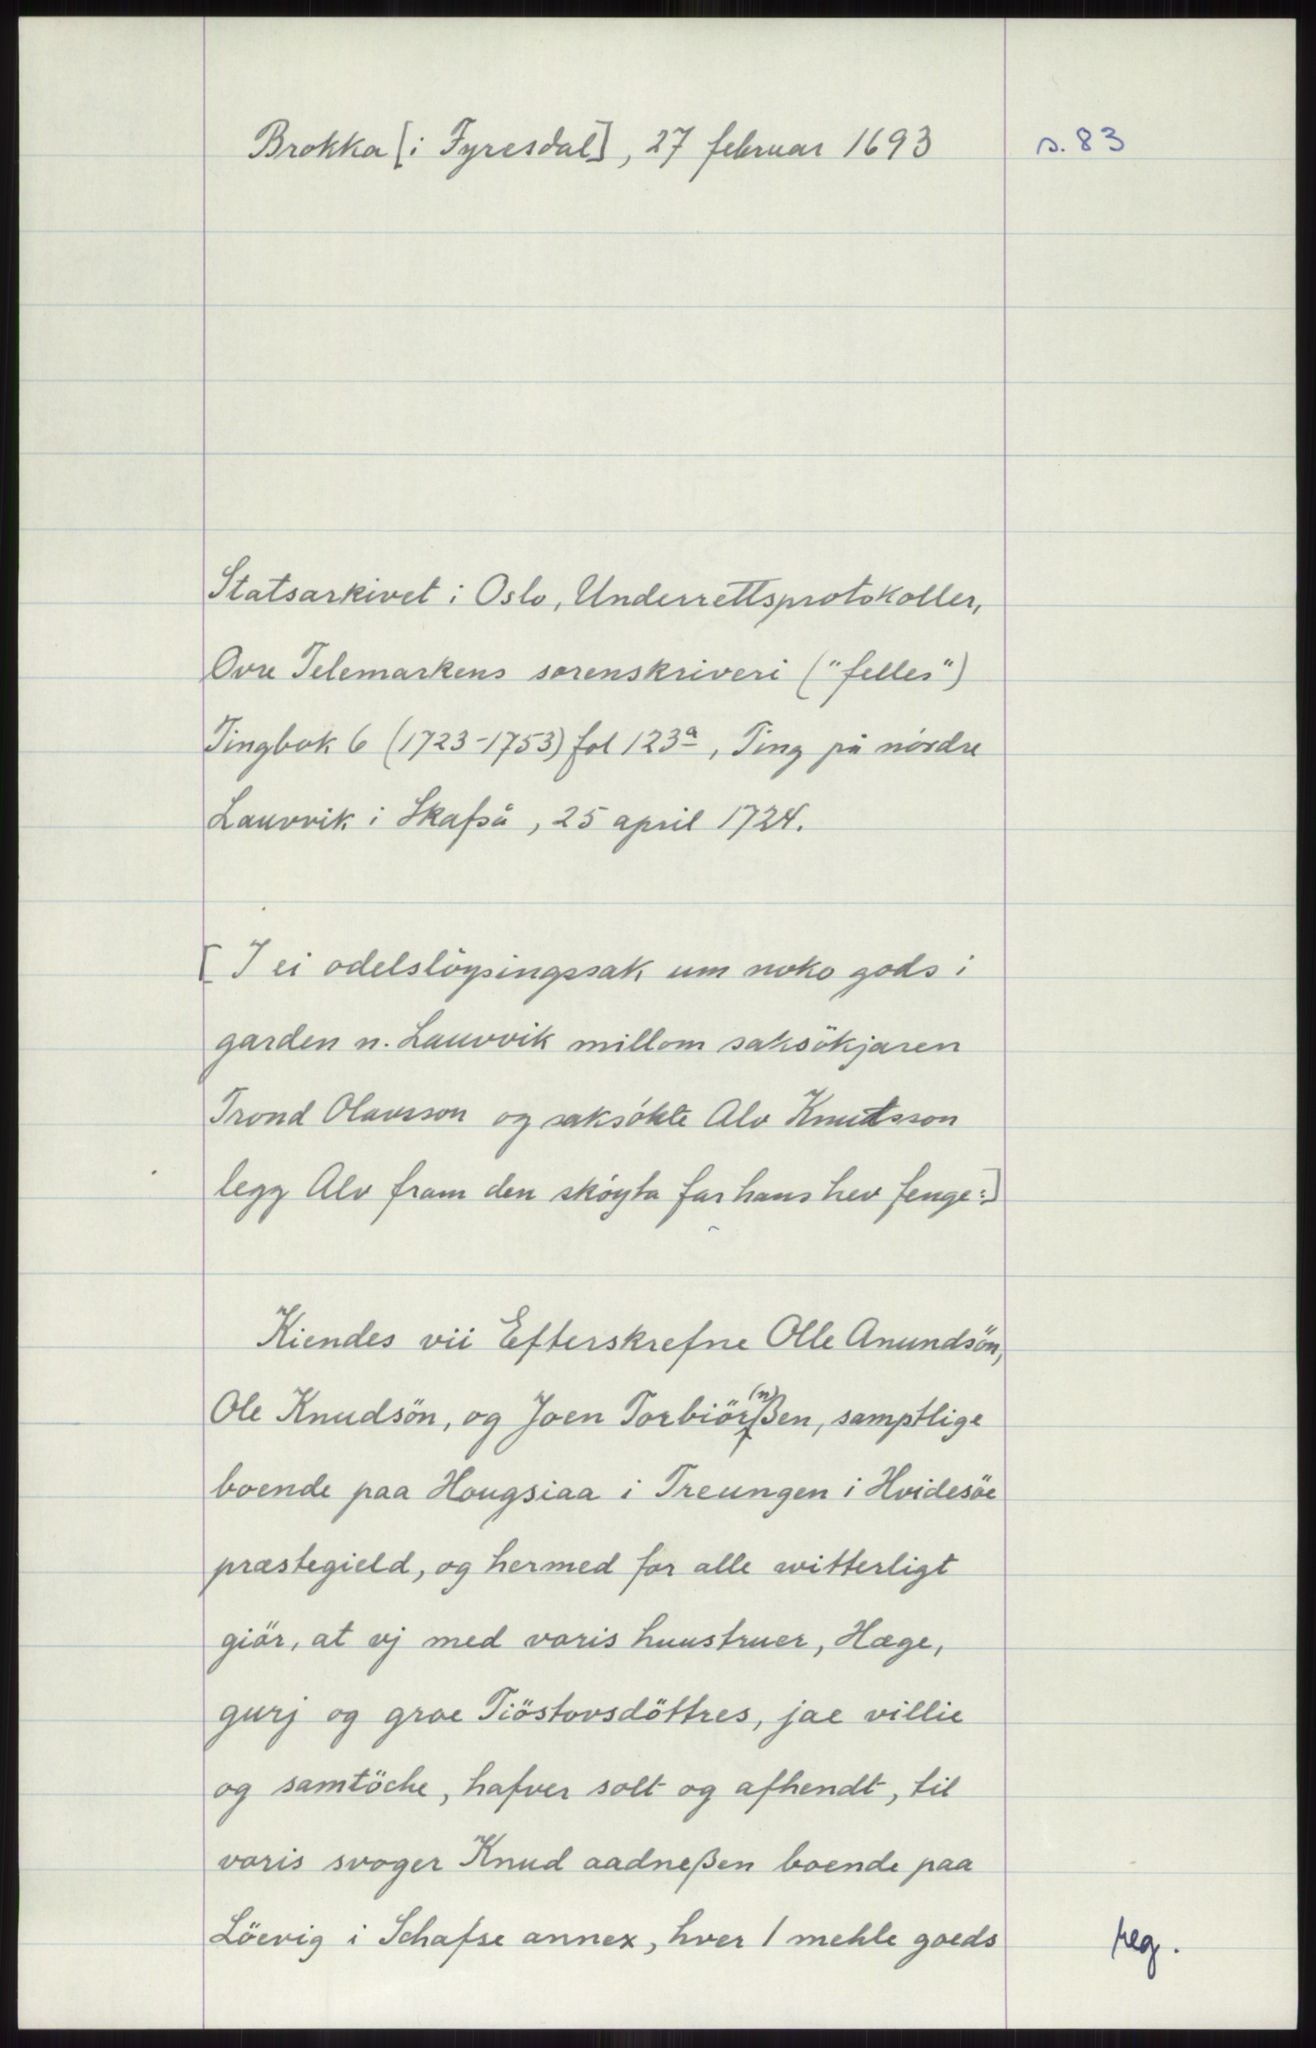 Brokka [i Fyresdal], 27 februar 1693 s. 83
Statsarkivet i Oslo, Underrettsprotokoller,
Øvre Telemarkens sorenskriveri ("felles")
Tingbok 6 (1723-1753) fol 123a, Ting på nørdre
Lauvvik i Skafså, 25 april 1724.
[I ei odelsløysingssak um noko gods i
garden n. Lauvvik millom saksökjaren
Trond Olavsson og saksökte Alv Knutsson
legg Alv fram den skøyta far hans hev fenge:]
Kiendes vii Efterskrefne Olle Anundsön,
Ole Knudsön, og Joen Torbiör(n)ßen, samptlige
boende paa Hougsiaa i Treungen i Hvidesöe
præstegield, og hermed for alle witterligt
giör, at vj med voris huustruer, Hæge,
gurj og groe Tiöstovsdöttres, jae villie
og samtöche, hafver solt og afhendt, til
voris svoger Knud aadneßen boende paa
Löevig i Schafse annex, hver 1 mehle goeds
reg.